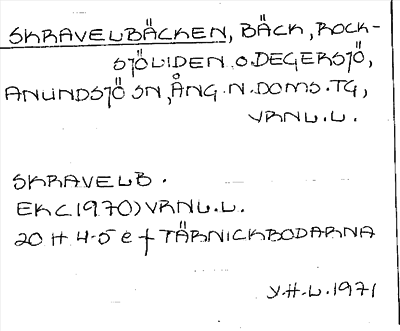 SKRAVELBÄCKEN, BÄCK, ROCK-
SJÖLIDEN O. DEGERSJÖ,
ANUNDSJÖ SN, ÅNG. N. DOMS. TG,
VRNL.L.
SKRAVELB.
EKC.(1970) VRNL.L.
20 H 4-5 e f TÄRNICKBODARNA
Y.H.L. 1971